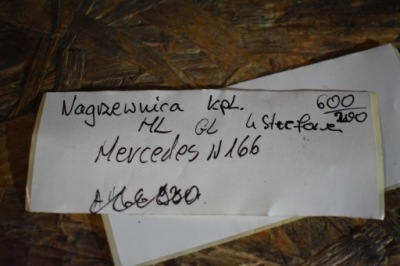 Nagrzewnica kpl. 600
ML GL 4 Strefowa 200
Mercedes W166